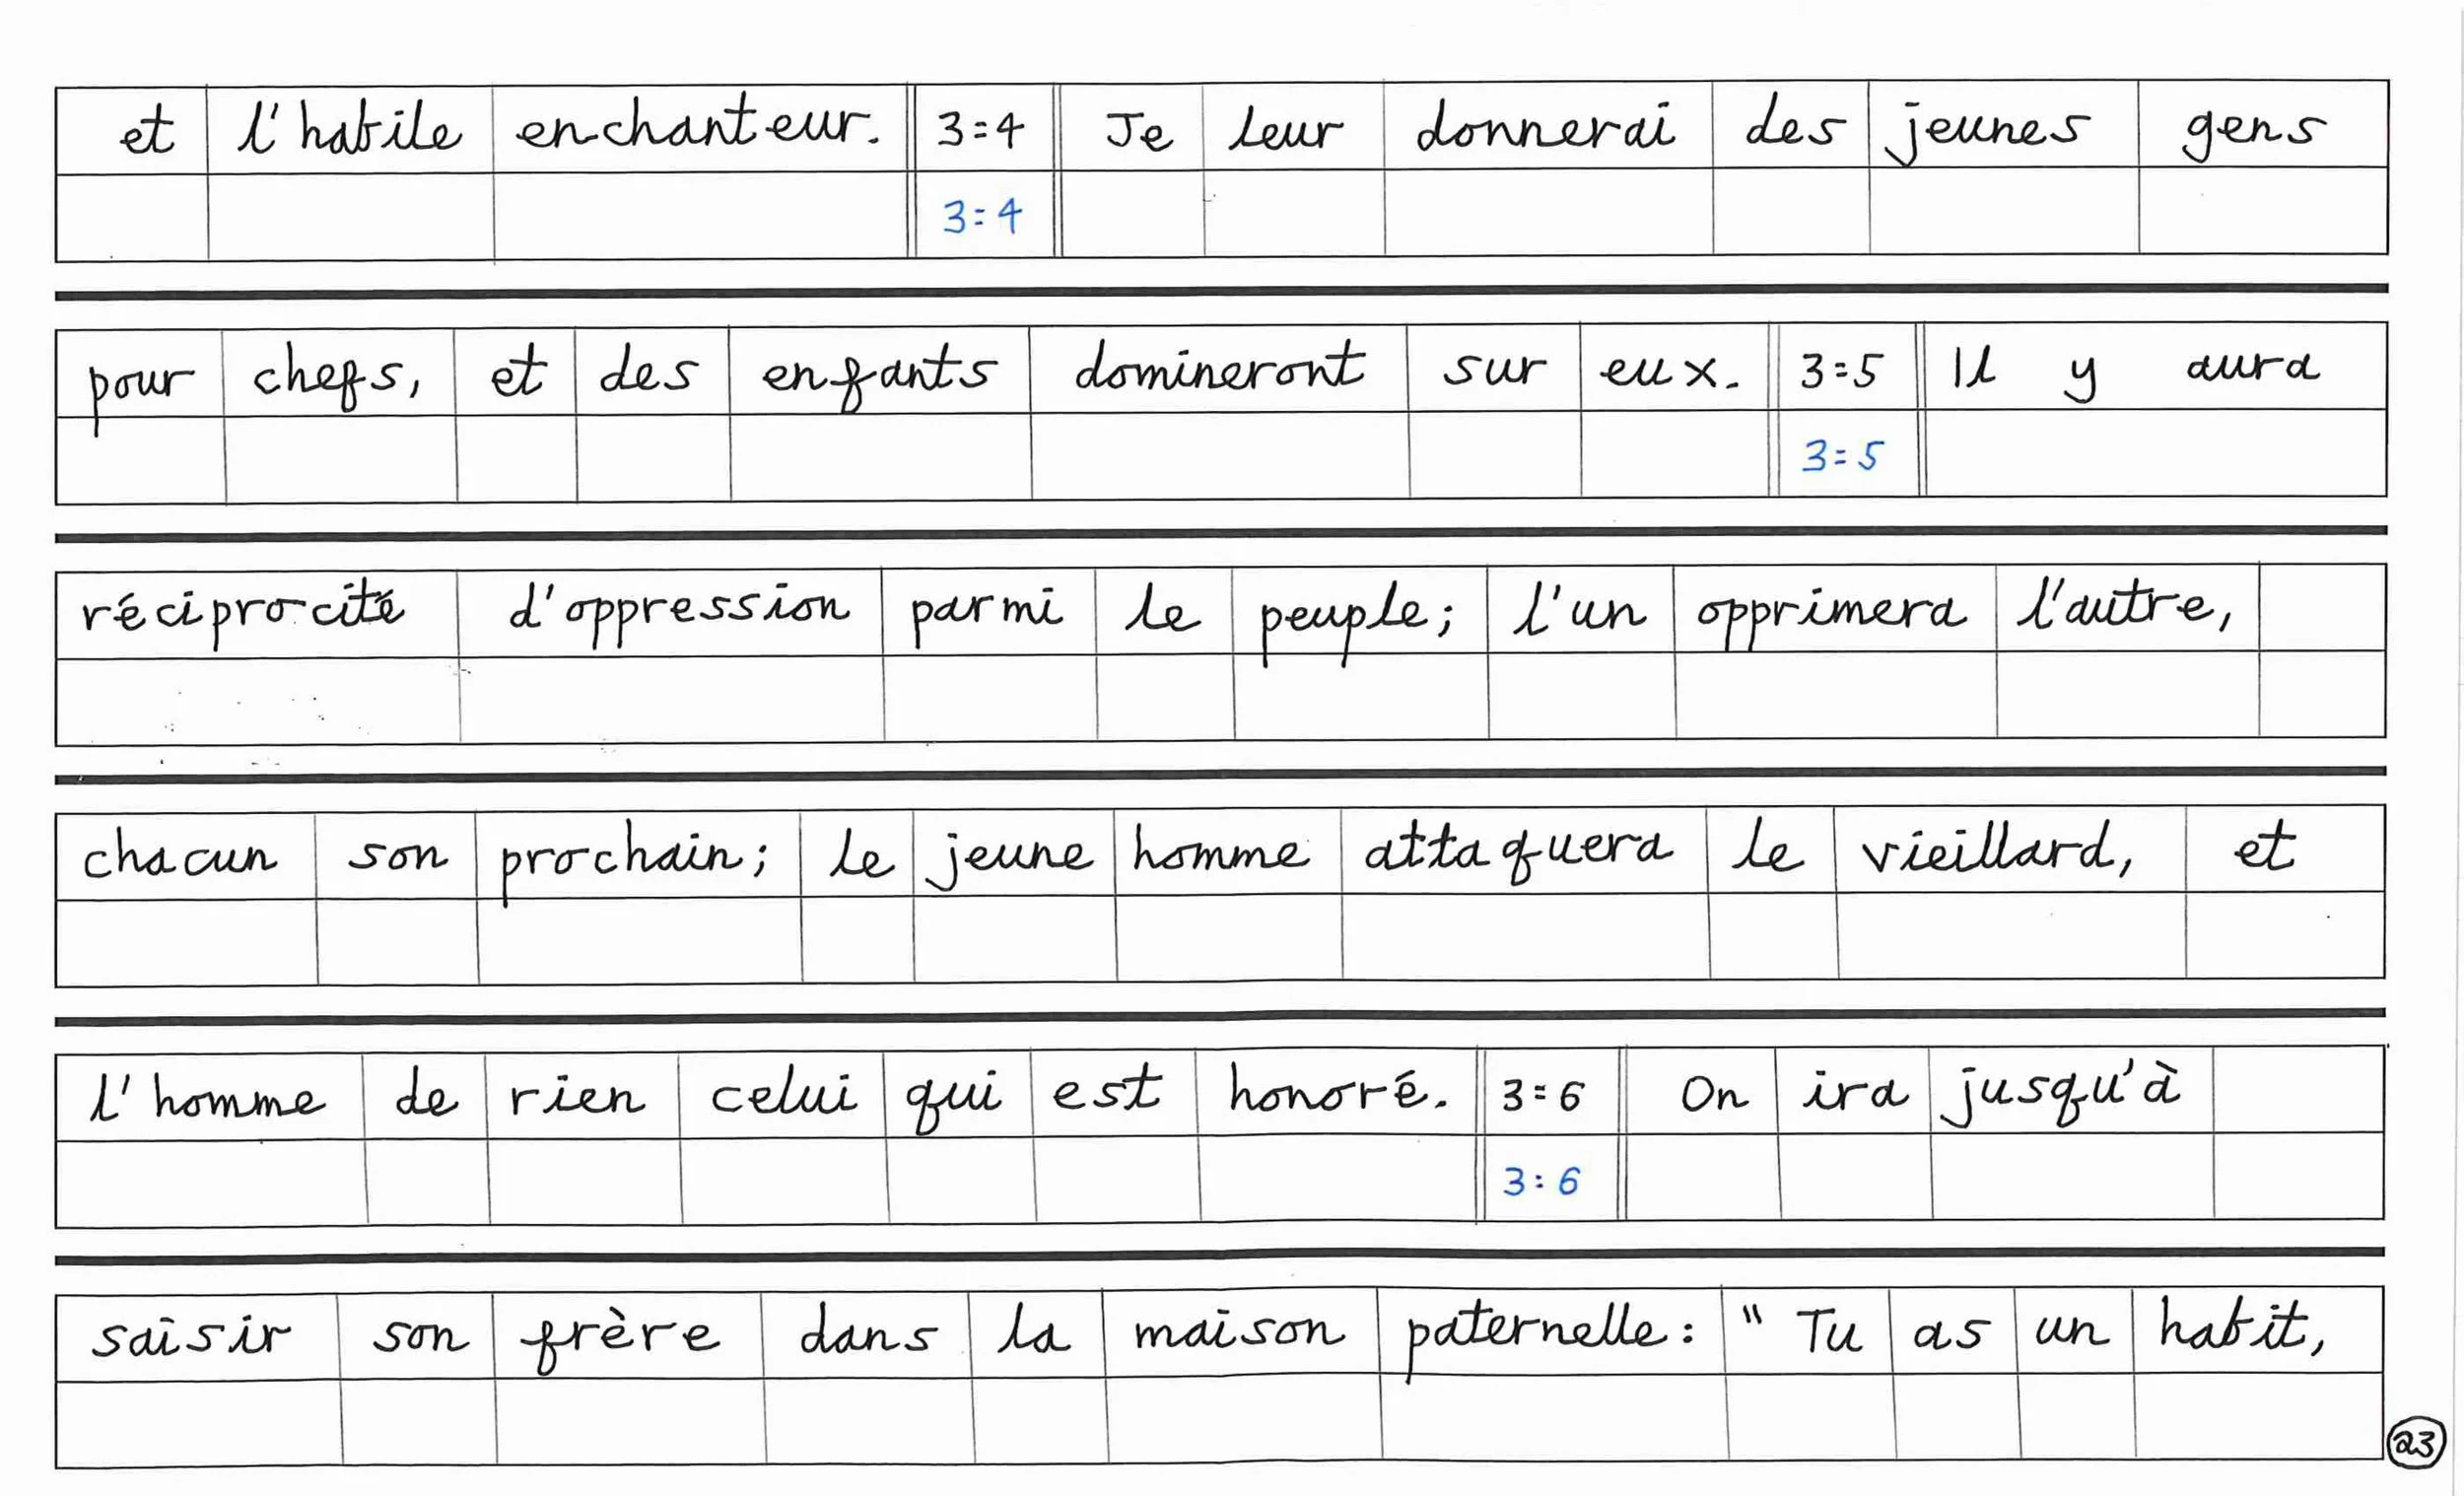 et l'habile enchanteur. 3:4 Je leur donnerai des jeunes gens
3:4
pour chefs, et des enfants domineront sur eux. 3:5 Il y aura
3:5
réciprocité d'oppression parmi le peuple; l'un opprimera l'autre,
chacun son prochain; le jeune homme attaquera le vieillard, et
l'homme de rien celui qui est honoré. 3:6 On ira jusqu'à
3:6
saisir son frère dans la maison paternelle: " Tu as un habit,
23